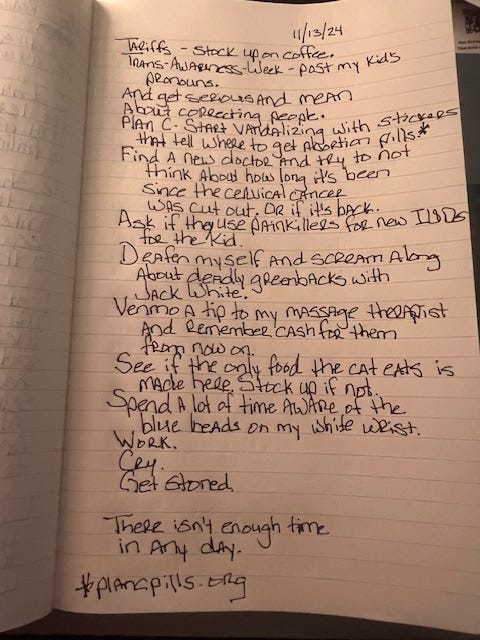 11/13/24
Tariffs - Stock up on coffee.
Trans-Awareness-Week - post my kid's
pronouns.
And get serious and mean
About correcting people.
Plan C. Start vandalizing with stickers
that tell where to get abortion pills*
Find a new doctor and try to not
think about how long it's been
since the cervical cancer
was cut out. Or if it's back.
Ask if they use painkillers for new IUDs
for the kid.
Deafen myself and scream along
About deadly greenbacks with
Jack White.
Venmo a tip to my massage therapist
and remember cash for them
from now on.
See if the only food the cat eats is
made here. Stock up if not.
Spend a lot of time aware of the
blue beads on my white wrist.
Work.
Cry.
Get stoned.
There isn't enough time
in any day.
*plancpills.org